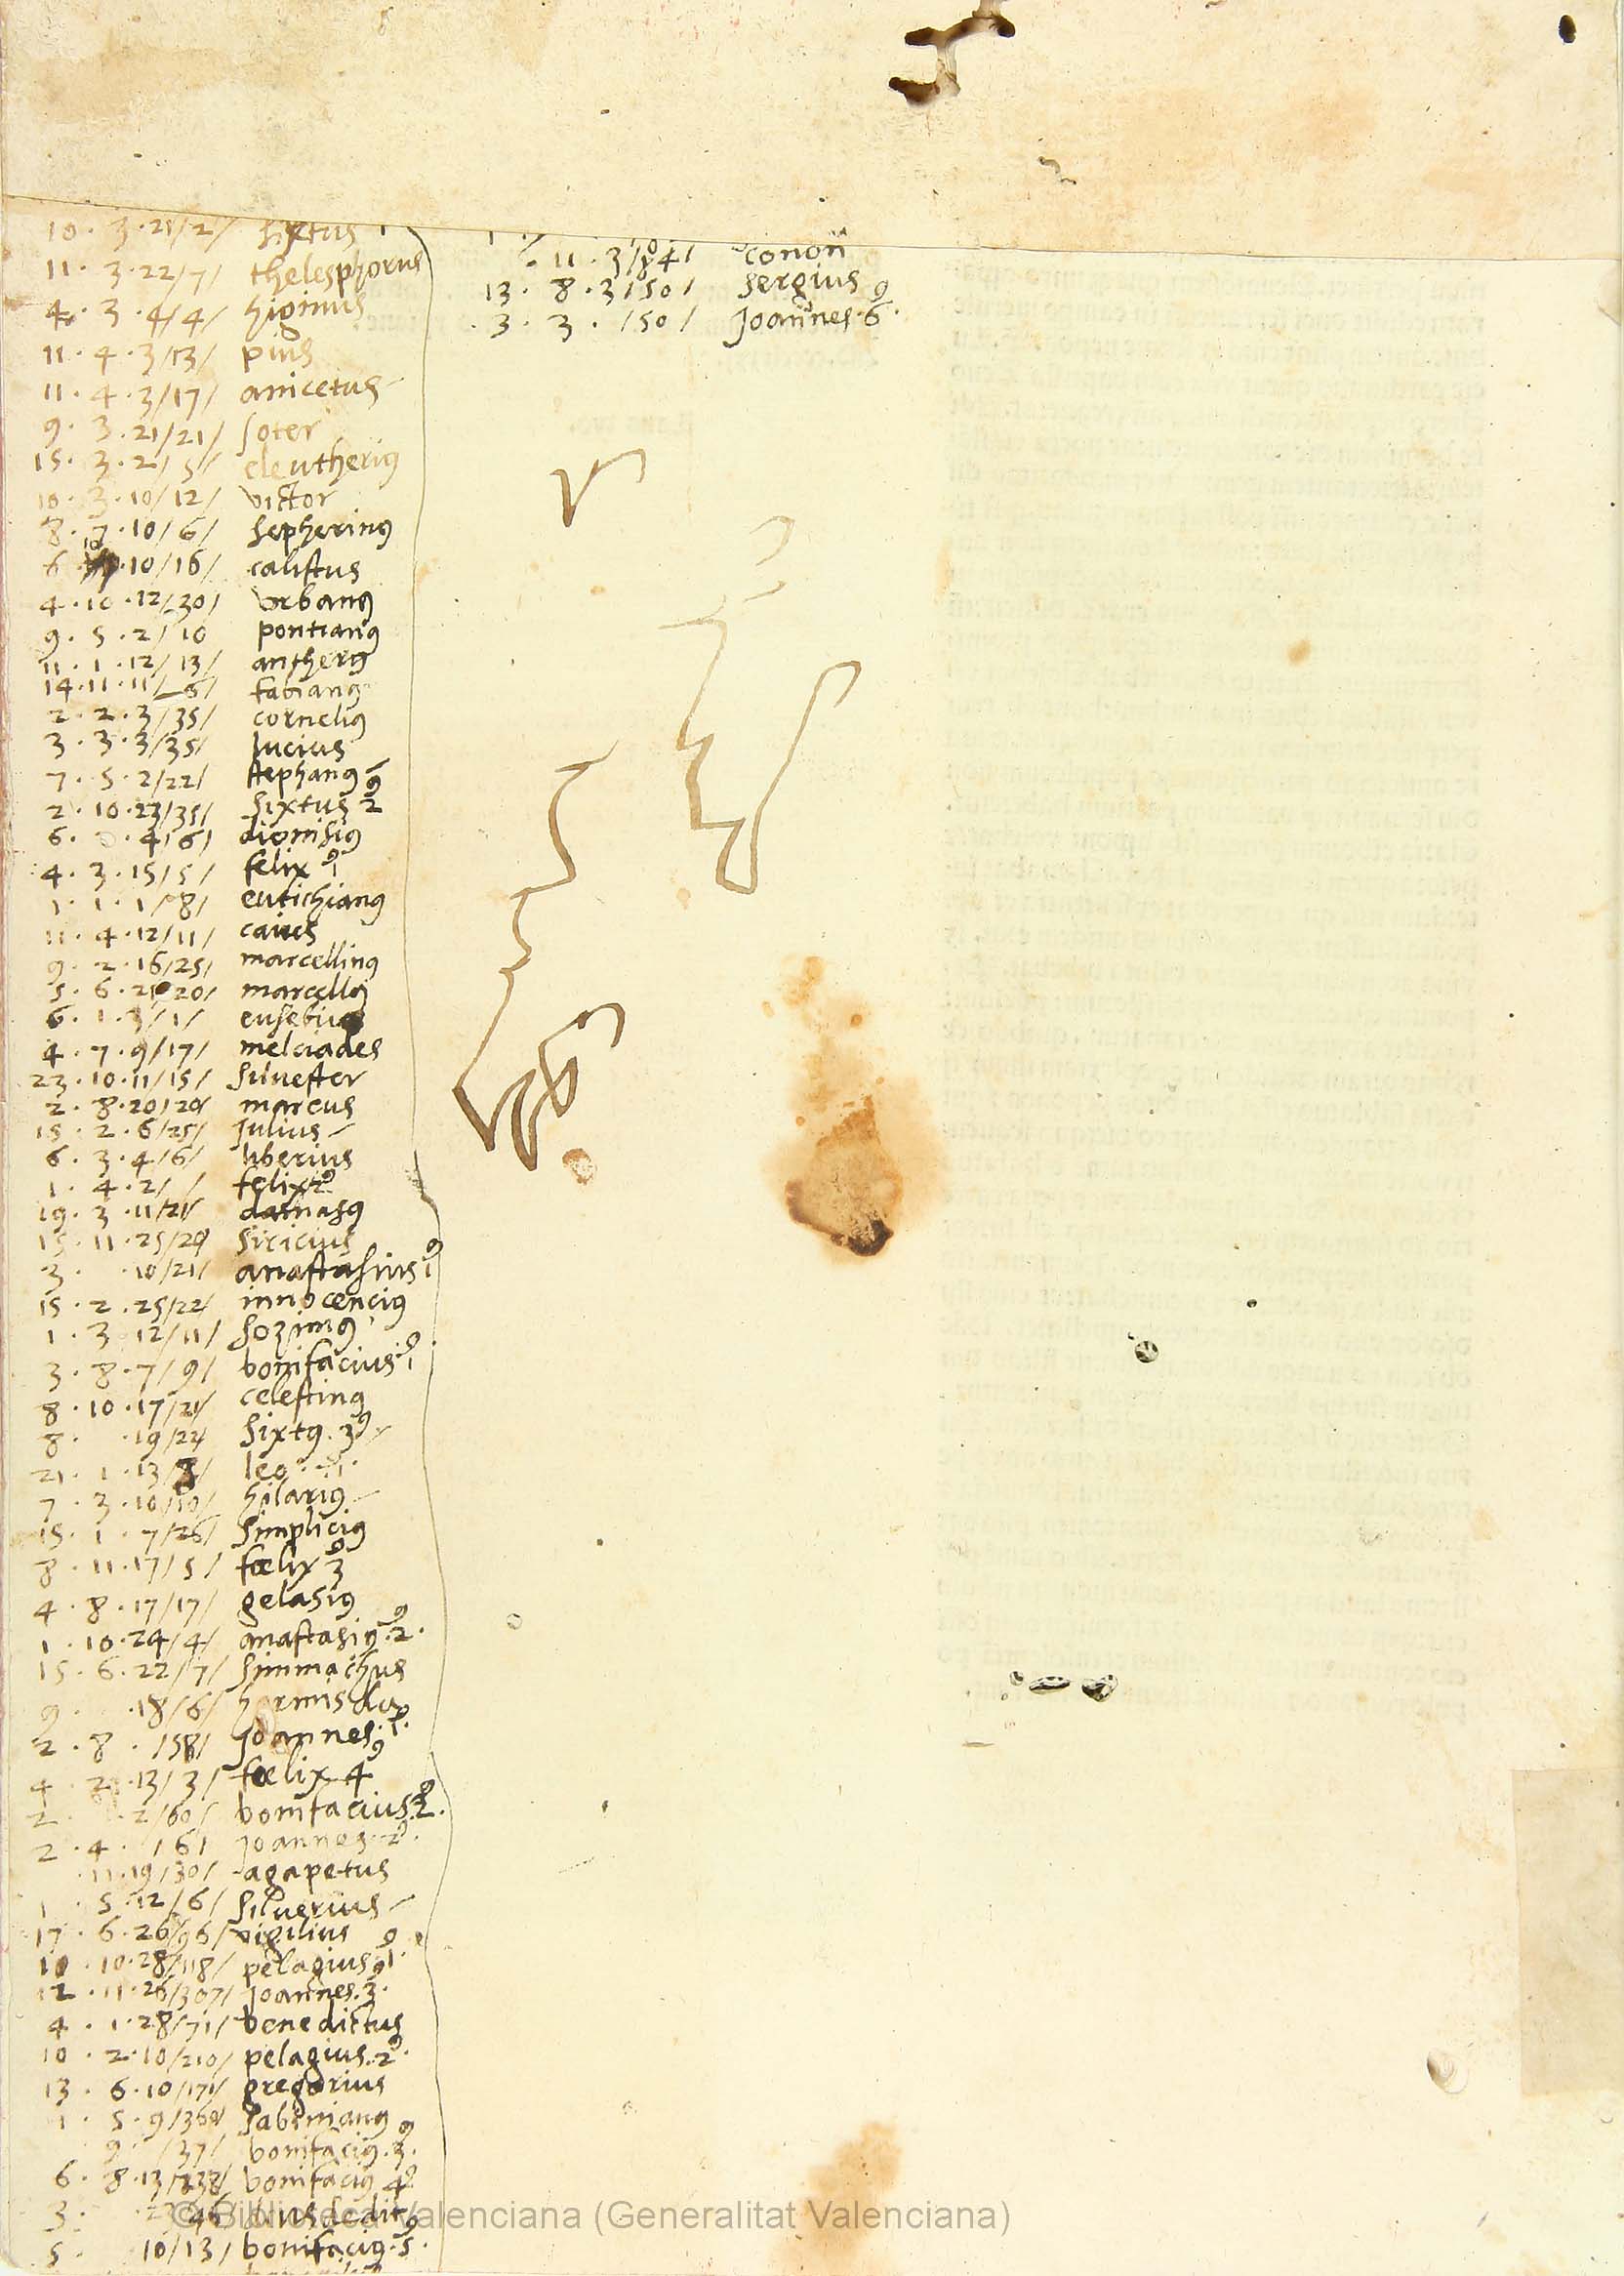 10 · 3 · 21/2/ sixtus 1
11 · 3 · 22/7/ thelesphorus
4 · 3 · 4/4/ higinius
11 · 4 · 3/13/ pius
11 · 4 · 3/17/ anicetus
9 · 3 · 21/21/ soter
15 · 3 · 2/5/ eleutheriꝰ
10 · 3 · 10/12/ victor
8 · 7 · 10/6/ sepherinꝰ
6 · 10 · 10/16/ calistus
4 · 10 · 12/30/ vrbanꝰ
9 · 5 · 2/10 pontianꝰ
11 · 1 · 12/13/ antherꝰ
14 · 11 · 11/6/ fabianꝰ
2 · 2 · 3/35/ corneliꝰ
3 · 3 · 3/35/ lucius
7 · 5 · 2/22/ stephanꝰ
2 · 10 · 23/35/ sixtus 2ꝰ
6 · 0 · 4/6/ dionisiꝰ
4 · 3 · 15/5/ felix 1ꝰ
1 · 1 · 1/8/ eutichianꝰ
11 · 4 · 12/11/ caius
9 · 2 · 16/25/ marcellinꝰ
5 · 6 · 21/20/ marcellꝰ
6 · 1 · 3/1/ eusebiuꝰ
4 · 7 · 9/17/ melciades
23 · 10 · 11/15/ siluester
2 · 8 · 20/20/ marcus
15 · 2 · 6/25/ Julius
6 · 3 · 4/6/ liberius
1 · 4 · 2/ / felix 2ꝰ
19 · 3 · 11/21/ damasꝰ
15 · 11 · 25/20/ siricius
3 · · 10/21/ anastasius 1ꝰ
15 · 2 · 25/22/ innocenciꝰ
1 · 3 12/11/ sozimꝰ
3 · 8 · 7/9/ bonifacius 1ꝰ
8 · 10 · 17/21/ celestinꝰ
8 · · 19/22/ sixtꝰ · 3ꝰ
21 · 1 · 13/8/ leo · 1ꝰ ·
7 · 3 · 10/10/ hilariꝰ
15 · 1 · 7/26/ simpliciꝰ
8 · 11 · 17/5/ fœlix 3ꝰ
4 · 8 · 17/17/ gelasiꝰ
1 · 10 · 24/4/ anastasiꝰ · 2ꝰ ·
15 · 6 · 22/7/ simmachus
9 · · 18/6/ hormisda
2 · 8 · /58/ Joannes · 1ꝰ ·
4 · 2 · 13/3/ fœlix 4ꝰ
2 · 2/60/ bonifacius · 2ꝰ ·
2 · 4 · /6/ Joannes · 2ꝰ ·
· 11 · 19/30/ agapetus
1 · 5 · 12/6/ siluerius
17 · 6 · 26/96/ vigilius
10 · 10 · 28/118/ pelagius 1ꝰ ·
12 · 11 · 26/307/ Joannes · 3ꝰ ·
4 · 1 · 28/71/ benedictus
10 · 2 · 10/210/ pelagius · 2ꝰ ·
13 · 6 · 10/171/ gregorius
1 · 5 · 9/360/ sabinianꝰ
9 · /37/ bonifaciꝰ · 3ꝰ ·
6 · 8 · 13/238/ bonifaciꝰ 4ꝰ
3 · · 23/46
5 · 10/13/ bonifaciꝰ · 5ꝰ ·
· 11 · 3/84/ conon
13 · 8 · 3/50/ sergius
· 3 · 3 · /50/ Joannes · 6ꝰ ·
© Biblioteca Valenciana (Generalitat Valenciana)